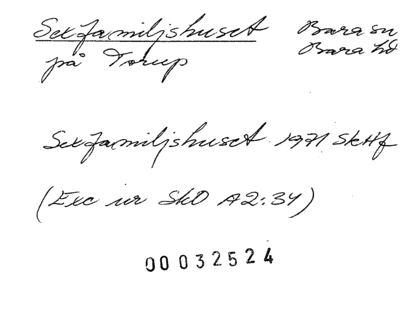 Sexfamiljshuset Bara sn
på Torup Bara hd
Sexfamiljshuset 1971 SkHf
(Exc ur SkO A2:34)
00032524